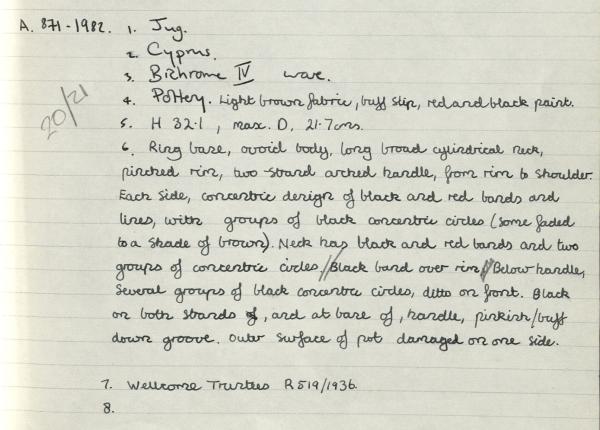 A. 871-1982. 1. Jug.
2. Cyprus.
3. Bichrome IV ware.
4. Pottery. Light brown fabric, buff slip, red and black paint.
20/21
5. H 32.1, max. D. 21.7cms.
6. Ring base, ovoid body, long broad cylindrical neck,
pinched rim, two strand arched handle, from rim to shoulder.
Each side, concentric design of black and red bands and
lines, with groups of black concentric circles (some faded
to a shade of brown). Neck has black and red bands and two
groups of concentric circles. // Black band over rim // Below handle,
several groups of black concentric circles, ditto on front. Black
on both strands of, and at base of, handle, pinkish/buff
down groove. Outer surface of pot damaged on one side.
7. Wellcome Trustees R519/1936.
8.